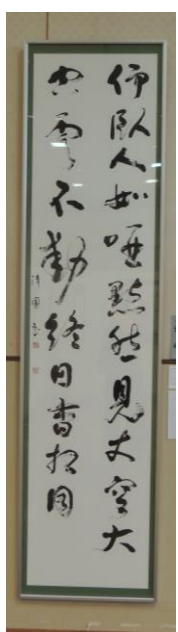 仰臥人如啞黙然見大空大
空雲不動終日杳相同